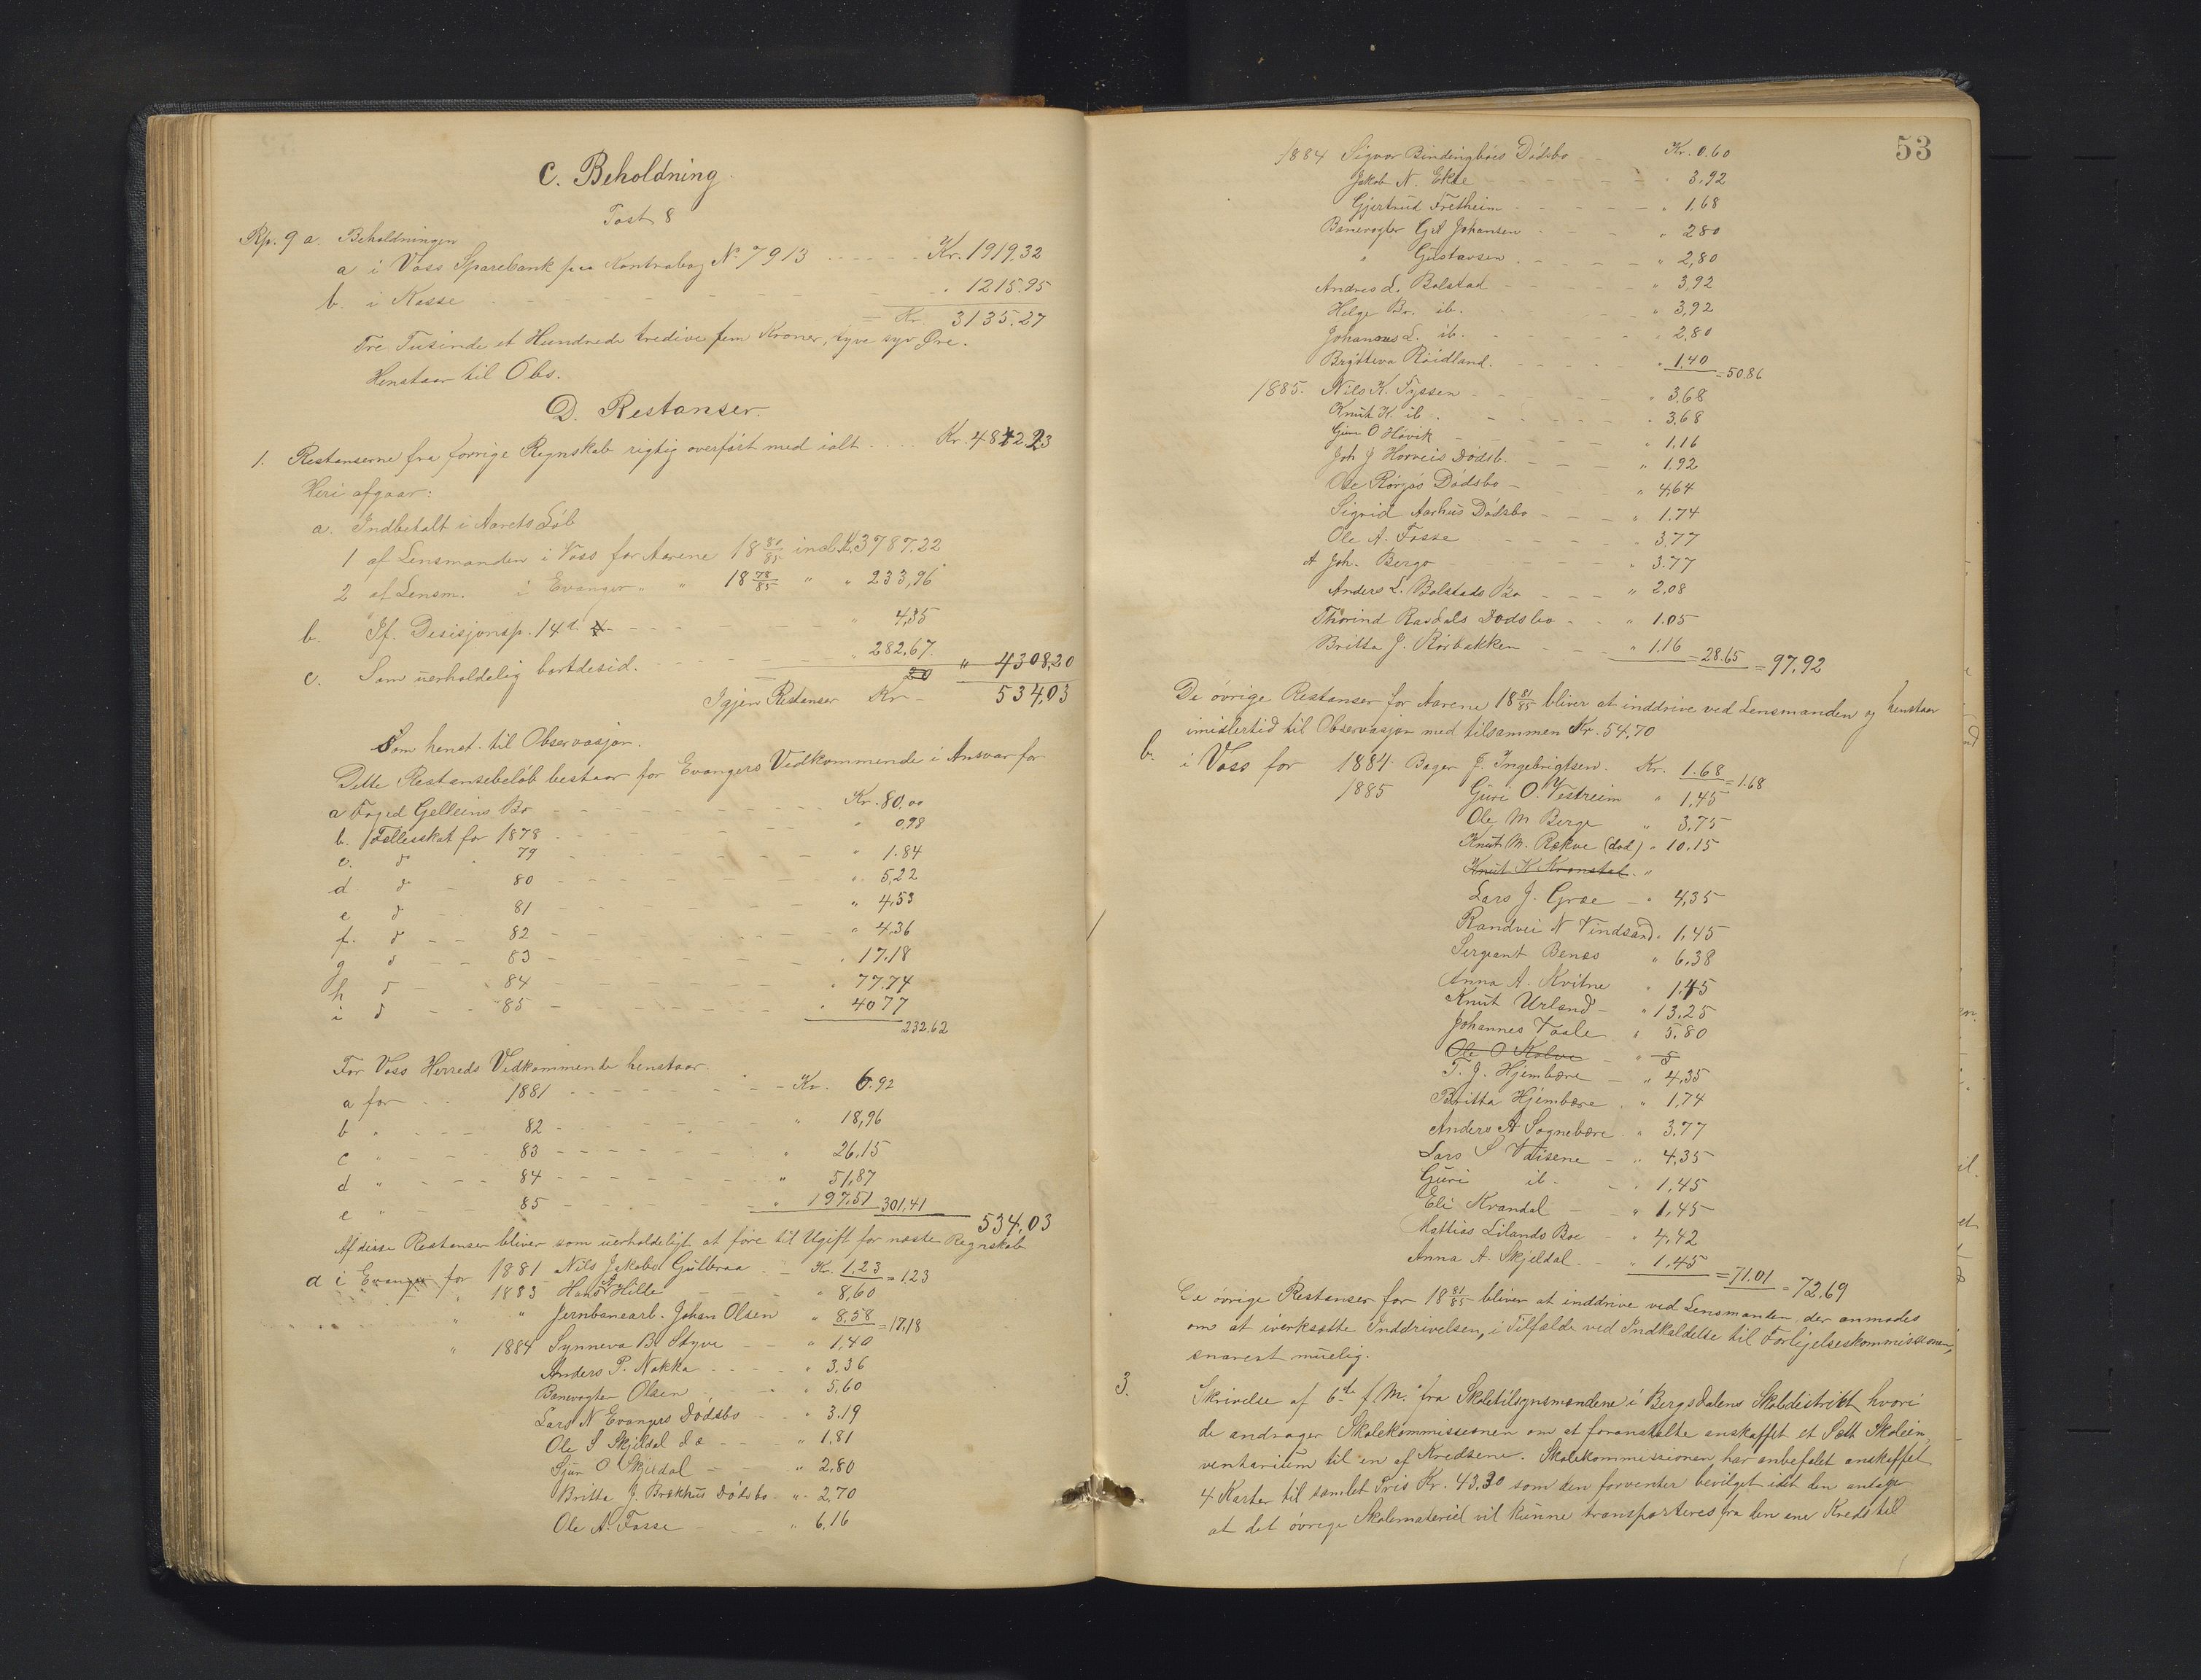 C. Beholdning.
Post 8
Rp. 9 a. Beholdningen
a i Voss Sparebank paa Kontrabog No 7913 Kr. 1919,32
b. i Kasse " 1215.95
= Kr 3135.27
Tre Tusinde et Hundrede tredive fem Kroner, tyve syv Øre.
Henstaar til Obs.
D. Restanser.
1. Restanserne fra forrige Regnskab rigtig overført med ialt Kr. 4842.23
Heri afgaar:
a. Indbetalt i Aarets Løb
1 af Lensmanden i Voss for Aarene 18 80/85 incl. 3787.22
2 af Lensm. i Evanger " " 18 78/85 " " 233,96
b. If. Desisjonsp. 14 " 4,35
c. Som uerholdelig bortdesid. " 282,67 " 4308,20
Igjen Restanser Kr 534,03
Som henst. til Observasjon.
Dette Restansebeløb bestaar for Evangers Vedkommende i Ansvar for
a Foged Gelleins Bo Kr. 80,00
b. Fællesskat for 1878 " 0,98
c. d " 79 " 1.84
d d 80 " 5,22
e d 81 " 4,53
f. d 82 " 4,36
g d 83 " 17.18
h d 84 " 77.74
i d 85 " 4077
232.62
For Voss Herreds Vedkommende henstaar.
a for 1881 Kr. 6.92
b " 82 " 18,96
c " 83 " 26.15
d " 84 " 51,87
e " 85 " 197.51 301,41
534,03
Af disse Restanser bliver som uerholdeligt at føre til Utgift for næste Regnskab
a i Evanger for 1881 Nils Jakobs Gulbraa Kr. 1,23 = 1,23
" 1883 Hans Hille " 8,60
" " Jernbanearb. Johan Olsen " 8,58 = 17,18
" 1884 Synneva B. Styve " 1,40
Anders P. Nakka " 3,36
Banevogter Olsen " 5,60
Lars N Evangers Dødsbo " 3.19
Ole S Skjeldal do " 1,81
Sjur O Skjeldal " 2,80
Britta J. Brækhus Dødsbo " 2,70
Ole A. Fosse " 6,16
53
1884 Sigvor Bindingbøes Dødsbo Kr. 0.60
Jakob N. Ekse " 3,92
Gjertrud Fretheim " 1,68
Banevogter G A Johansen " 280
" Gustavsen " 2,80
Andres L. Bolstad " 3,92
Helge Br. ib. " 3,92
Johannes L. ib. " 2,80
Brytteva Røidland. " 1,40 = 50.86
1885. Nils K. Tyssen " 3,68
Knut K. ib. " 3,68
Gjur O Høvik " 1,16
Joh J Horveis Dødsb. " 1,92
Ose Rørgjos Dødsbo " 4,64
Sigrid Aarhus Dødsbo " 1.74
Ole A. Fosse " 3,77
A Joh. Bergo " 3.77
Anders L. Bolstads Bo " 2.08
Thorind Rasdals Dødsbo " 1.05
Britta J. Rørbakken " 1.16 = 28.65 = 97,92
De øvrige Restanser for Aarene 18 81/85 bliver at inddrive ved Lensmanden og henstaar
imidlertid til Observasjon med tilsammen Kr. 54,70
b. i Voss for 1884 Bager J. Ingebrigtsen. Kr. 1.68 = 1.68
1885 Guri O. Vestreim " 1,45
Ole M Berge " 3,75
Knut M. Rekve (død) " 10.15
Knut K Kronstal "
Lars J. Græe " 4,35
Randvei N Tindsand " 1,45
Sergeant Benæs " 6.38
Anna A. Kvitne " 1.45
Knut Urland " 13,25
Johannes Vaale " 5,80
Ole O Kolve " 5
T. J. Hjembære " 4,35
Britta Hjembære " 1,74
Anders A Sognebære " 3.77
Lars S Vaisene " 4,35
Guri ib. " 1,45
Eli Krandal " 1,45
Mattias Lilands Boe " 4,42
Anna A. Skjeldal " 1,45 = 71.01 = 72.69
De øvrige Restanser for 18 81/85 bliver at inddrive ved Lensmanden, der anmodes
om at iverksætte Inddrivelsen, i Tilfælde ved Indkaldelse til Forligelseskommissionen,
snarest muelig.
3. Skrivelse af 6te f. M. fra Skoletilsynsmændene i Bergsdalens Skoledistrikt, hvori
de andrager Skolekommissionen om at foranstalte anskaffet et Sæt Skolein-
ventarium til en af Kredsene. Skolekommissionen har anbefalet anskaffet
4 Karter til samlet Pris Kr. 43.30 som den forventer bevilget idet den antager
at det øvrige Skolemateriel vil kunne transporteres fra den ene Kreds til